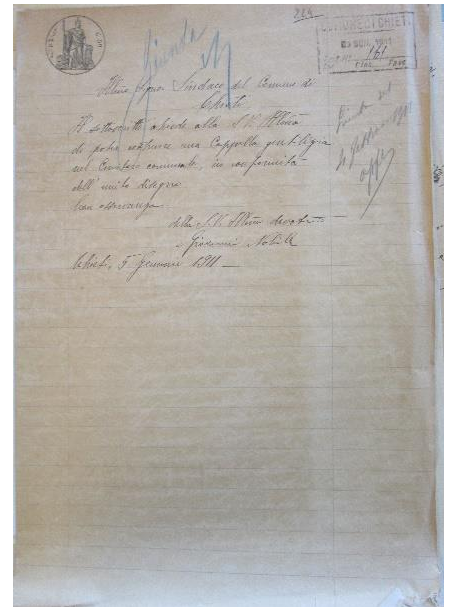 224
COMUNE DI CHIETI
GEN. 1911
161
Giunta
Ill.mo Signor Sindaco del Comune di
Chieti
Il sottoscritto chiede alla S.V. Ill.ma
di poter costruire una Cappella gentilizia
nel Cimitero comunale, in conformità
dell'unito disegno
Con osservanza
della S.V. Ill.ma devot.
Giovanni Nobile
Chieti, 5 Gennaio 1911
Giunta del
Febbraio 1911